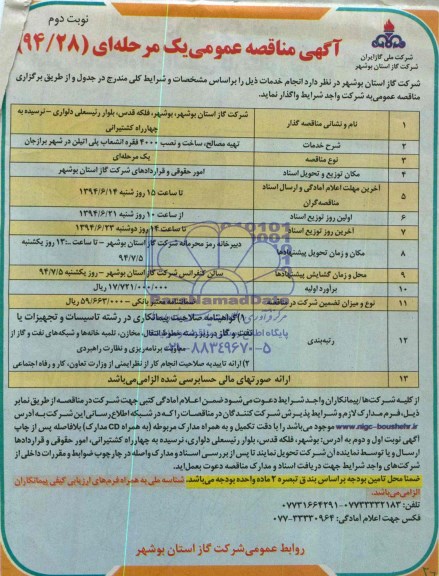 نوبت دوم
شرکت ملی گاز ایران
شرکت گاز استان بوشهر
آگهی مناقصه عمومی یک مرحله‌ای (۹۴/۲۸)
شرکت گاز استان بوشهر در نظر دارد انجام خدمات ذیل را براساس مشخصات و شرایط کلی مندرج در جدول و از طریق برگزاری
مناقصه عمومی به شرکت واجد شرایط واگذار نماید.
۱ نام و نشانی مناقصه گذار شرکت گاز استان بوشهر، بوشهر، فلکه قدس، بلوار رئیسعلی دلواری – نرسیده به
چهارراه کشتیرانی
۲ شرح خدمات تهیه مصالح، ساخت و نصب ۴۰۰۰ فقره انشعاب پلی اتیلن در شهر برازجان
۳ نوع مناقصه یک مرحله‌ای
۴ مکان توزیع و تحویل اسناد امور حقوقی و قراردادهای شرکت گاز استان بوشهر
۵ آخرین مهلت اعلام آمادگی و ارسال اسناد
مناقصه‌گران تا ساعت ۱۵ روز شنبه ۱۳۹۴/۶/۱۴
۶ اولین روز توزیع اسناد از ساعت ۱۰ روز شنبه ۱۳۹۴/۶/۲۱
۷ آخرین روز توزیع اسناد تا ساعت ۱۴ روز دوشنبه ۱۳۹۴/۶/۲۳
۸ مکان و زمان تحویل پیشنهادها دبیرخانه رمز محرمانه شرکت گاز استان بوشهر – تا ساعت ۱۳:۰۰ روز یکشنبه
۹۴/۷/۵
۹ محل و زمان گشایش پیشنهادها سالن کنفرانس شرکت گاز استان بوشهر – روز یکشنبه ۹۴/۷/۵
۱۰ برآورد اولیه ۱۷/۷۲۱/۰۰۰/۰۰۰ ریال
۱۱ نوع و میزان تضمین شرکت در مناقصه ضمانتنامه معتبر بانکی – ۵۹۱/۶۶۳/۰۰۰ ریال
۱۲ رتبه‌بندی ۱) گواهینامه صلاحیت پیمانکاری در رشته تاسیسات و تجهیزات یا
نفت و گاز در زیر رشته خطوط انتقال، مخازن، تلمبه خانه‌ها و شبکه‌های نفت و گاز از
معاونت برنامه‌ریزی و نظارت راهبردی
۲) ارائه تاییدیه صلاحیت انجام کار از نظر ایمنی از وزارت تعاون، کار و رفاه اجتماعی
۱۳ ارائه صورتهای مالی حسابرسی شده الزامی می‌باشد
از کلیه شرکت‌ها/پیمانکاران واجد شرایط دعوت می‌شود ضمن اعلام آمادگی کتبی جهت شرکت در مناقصه از طریق نمابر
ذیل، فرم مدارک لازم و شرایط پذیرش شرکت کنندگان در مناقصات را که در شبکه اطلاع رسانی این شرکت به آدرس
www.nigc-boushehr.ir موجود می‌باشد را با دقت تکمیل و به همراه مدارک مربوطه (به همراه CD مدارک) بلافاصله پس از چاپ
آگهی نوبت اول و دوم به آدرس: بوشهر، فلکه قدس، بلوار رئیسعلی دلواری، نرسیده به چهارراه کشتیرانی، امور حقوقی و قراردادها
ارسال و یا توسط نماینده آن شرکت تحویل نمایند تا پس از بررسی اسناد و مدارک واصله در چارچوب ضوابط و مقررات داخلی از
شرکت‌های واجد شرایط جهت دریافت اسناد و مدارک مناقصه دعوت بعمل آید.
ضمنا محل تامین بودجه براساس بند ق تبصره ۲ ماده واحده بودجه می‌باشد. شناسه ملی به همراه فرم‌های ارزیابی کیفی پیمانکاران
الزامی می‌باشد.
تلفن: ۰۷۷۳۳۳۳۲۱۸۳-۰۷۷۳۱۶۶۴۲۹۱
فکس جهت اعلام آمادگی: ۰۷۷-۳۳۳۳۰۹۶۴
روابط عمومی شرکت گاز استان بوشهر